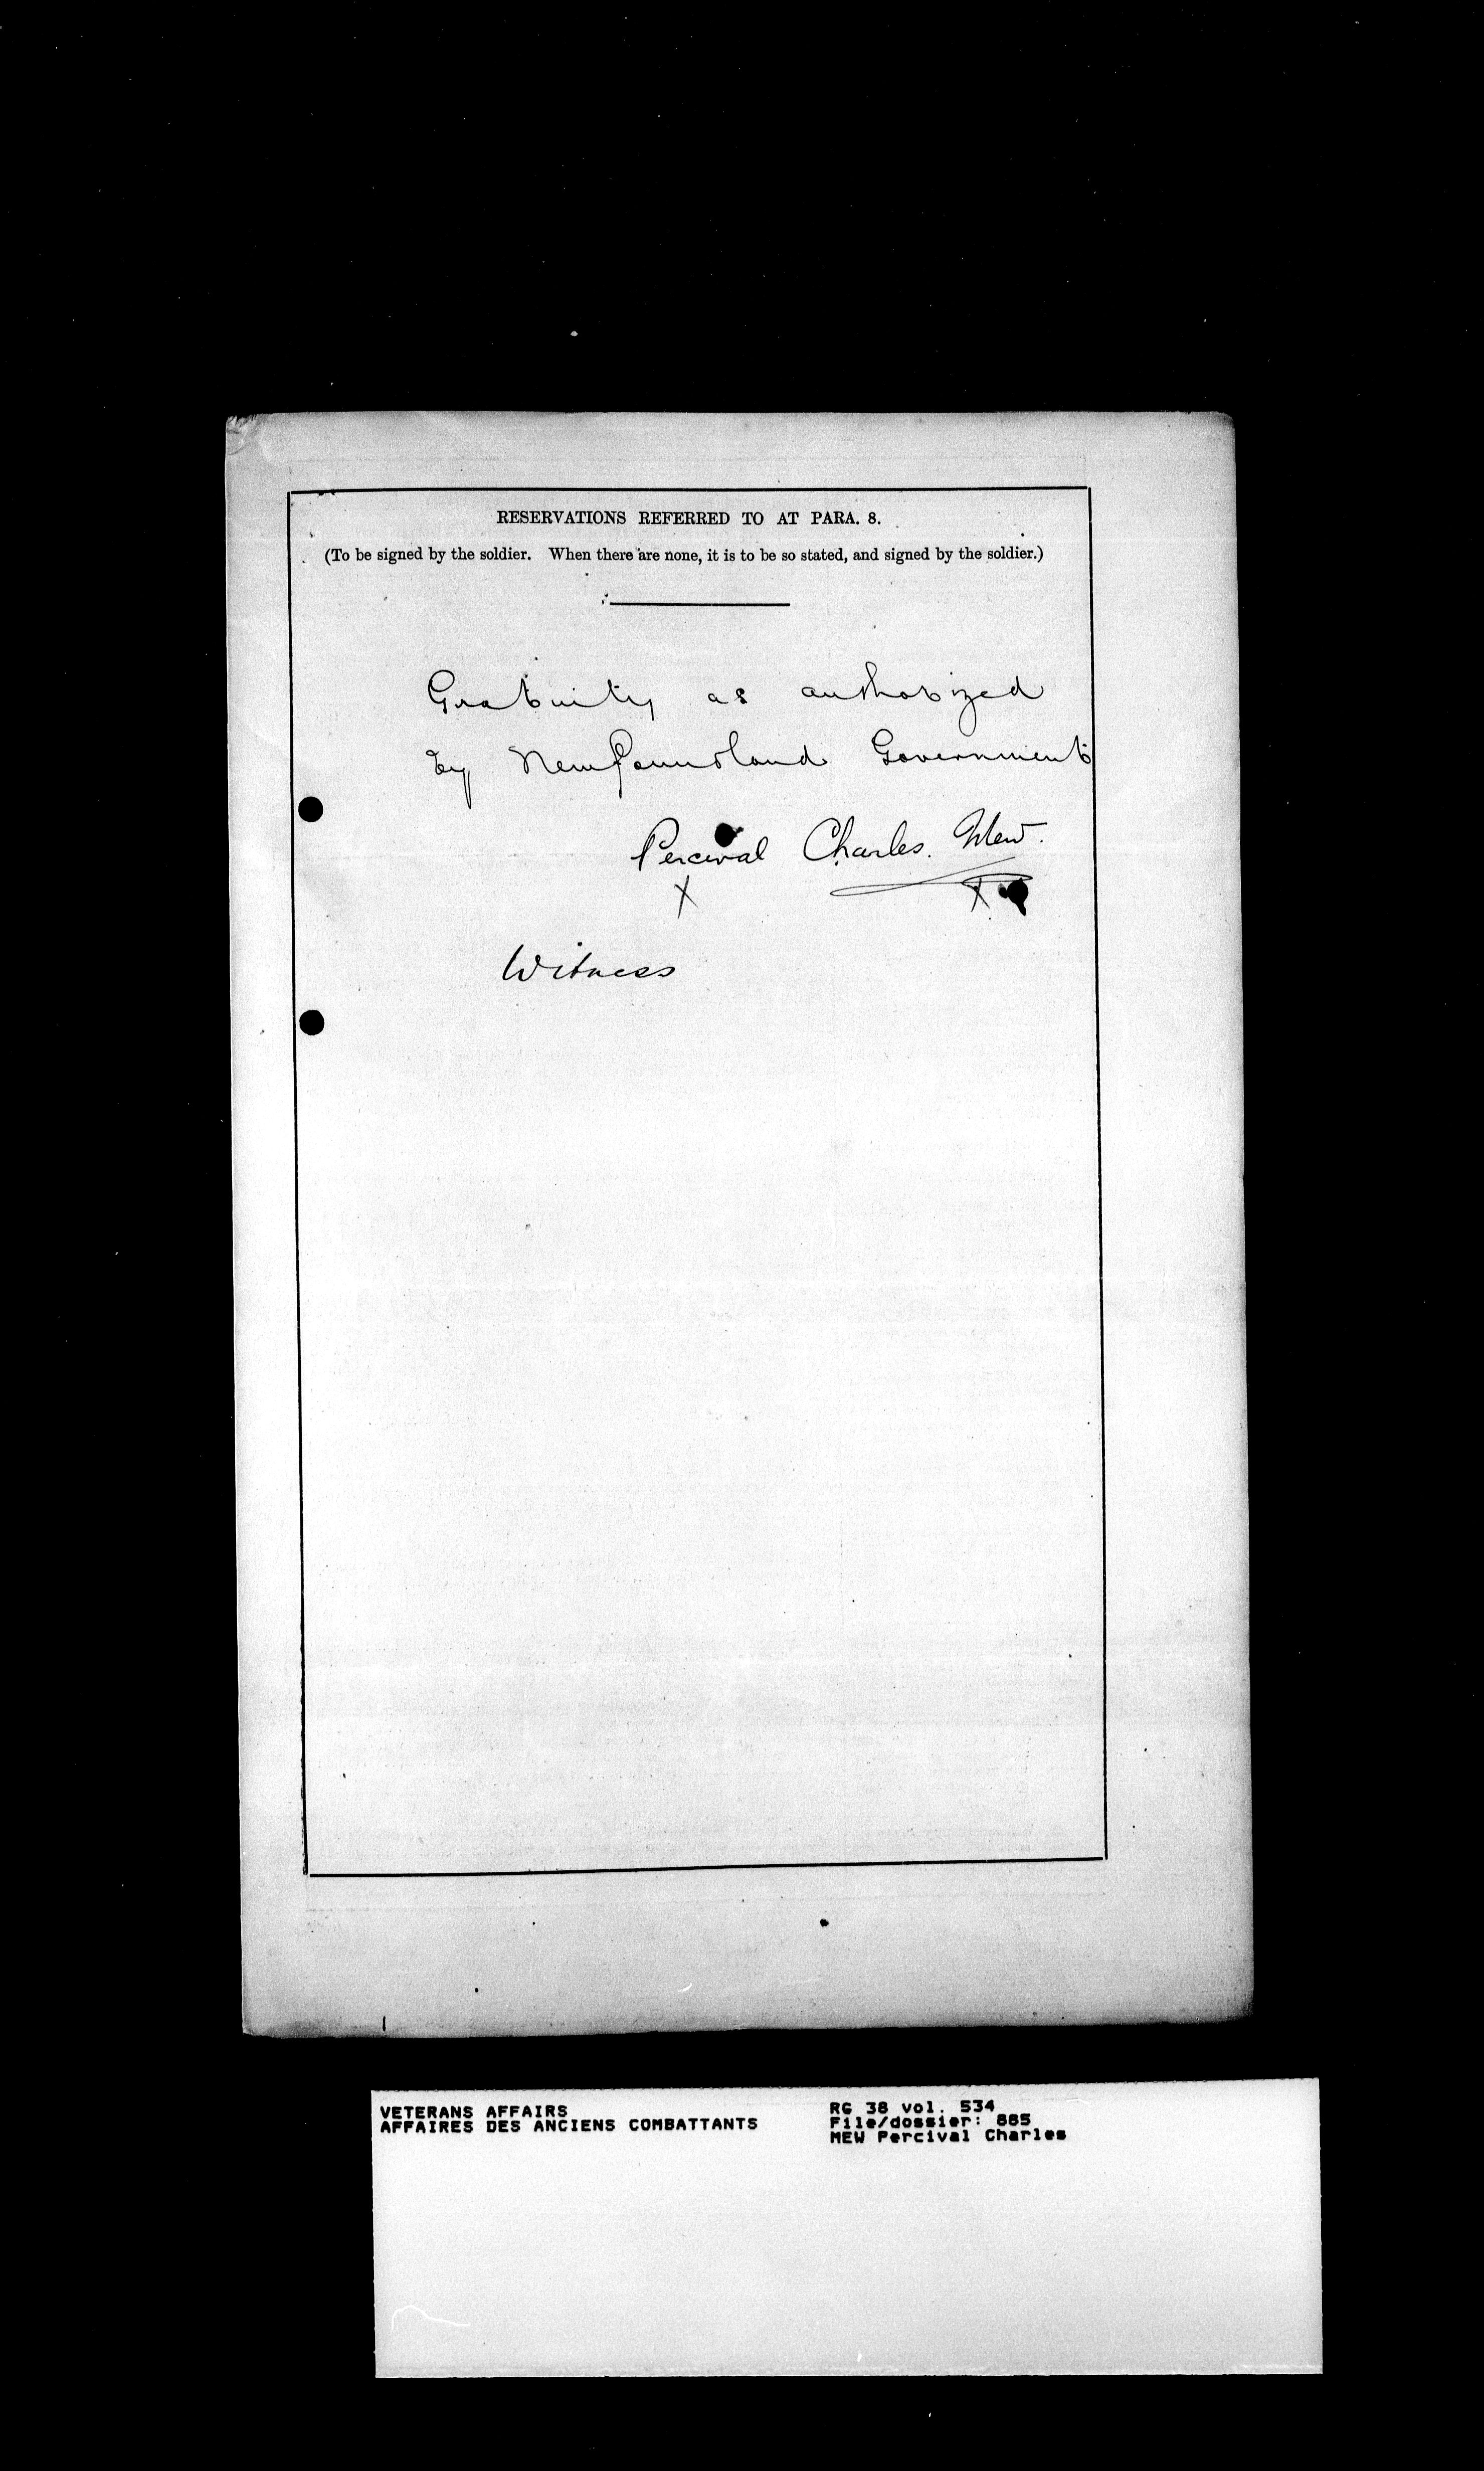 RESERVATIONS REFERRED TO AT PARA. 8.
(To be signed by the soldier. When there are none, it is to be so stated, and signed by the soldier.)
Gratuity as authorized
by Newfoundland Government
Percival Charles. Mew.
X X
Witness
VETERANS AFFAIRS
AFFAIRES DES ANCIENS COMBATTANTS
RG 38 vol. 534
File/dossier: 885
MEW Percival Charles